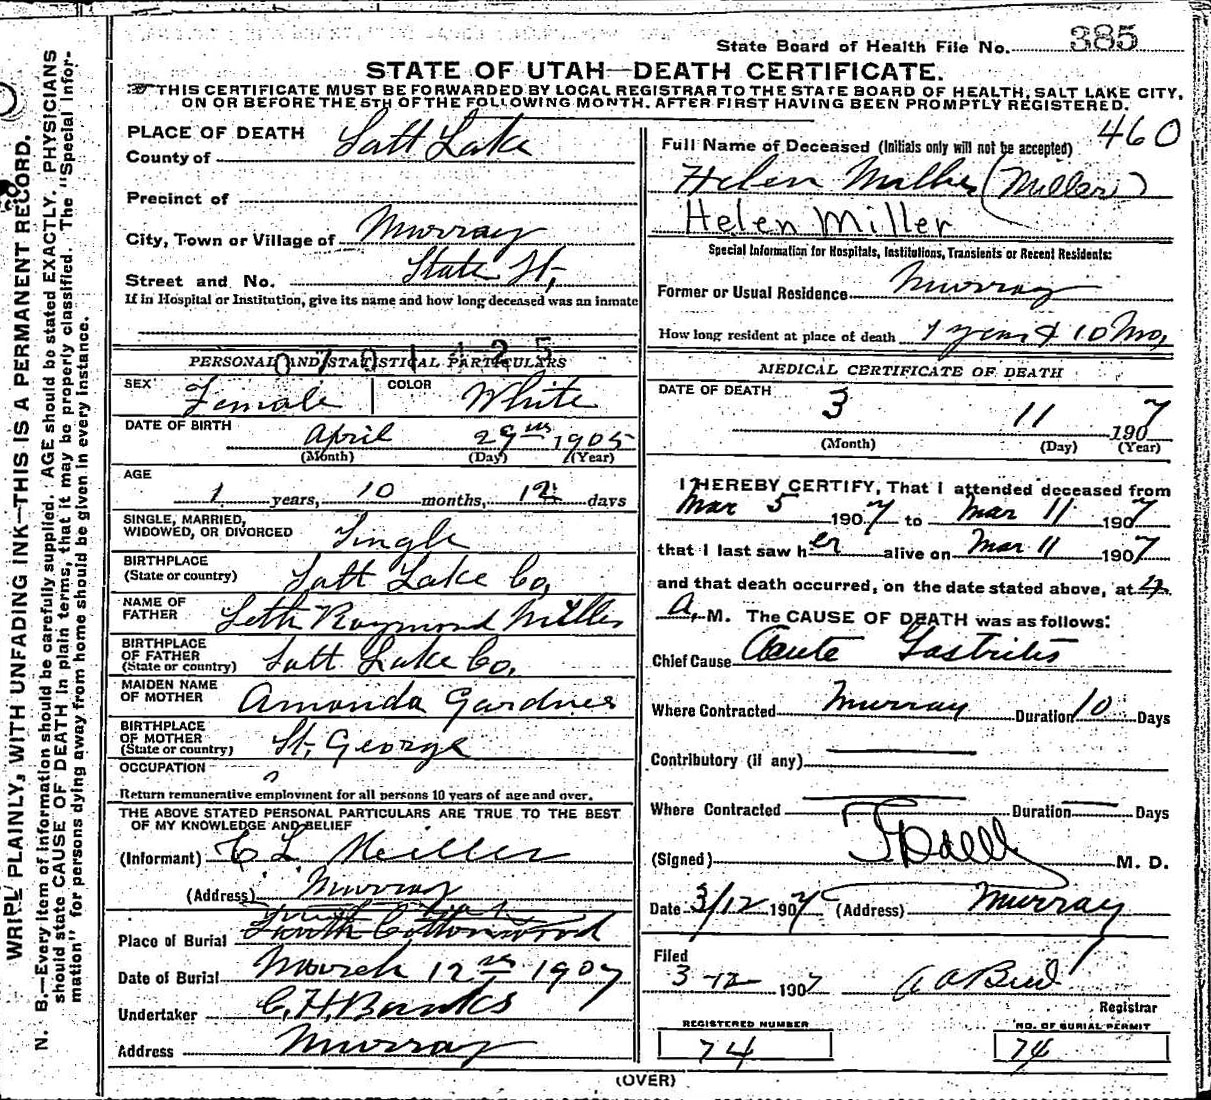 State Board of Health File No. 385
STATE OF UTAH—DEATH CERTIFICATE.
THIS CERTIFICATE MUST BE FORWARDED BY LOCAL REGISTRAR TO THE STATE BOARD OF HEALTH, SALT LAKE CITY,
ON OR BEFORE THE 5TH OF THE FOLLOWING MONTH. AFTER FIRST HAVING BEEN PROMPTLY REGISTERED.
PLACE OF DEATH
County of Salt Lake
Precinct of
City, Town or Village of Murray
Street and No. State St.
If in Hospital or Institution, give its name and how long deceased was an inmate
0701425
PERSONAL AND STATISTICAL PARTICULARS
SEX Female COLOR White
DATE OF BIRTH April 29 1905
(Month) (Day) (Year)
AGE
1 years, 10 months, 12 days
SINGLE, MARRIED,
WIDOWED, OR DIVORCED Single
BIRTHPLACE
(State or country) Salt Lake Co,
NAME OF
FATHER Seth Raymond Miller
BIRTHPLACE
OF FATHER
(State or country) Salt Lake Co,
MAIDEN NAME
OF MOTHER Amanda Gardner
BIRTHPLACE
OF MOTHER
(State or country) St. George
OCCUPATION
Return remunerative employment for all persons 10 years of age and over.
THE ABOVE STATED PERSONAL PARTICULARS ARE TRUE TO THE BEST
OF MY KNOWLEDGE AND BELIEF
(Informant) C L Miller
(Address) Murray
Place of Burial South Cottonwood
Date of Burial March 12 1907
Undertaker C. H. Banks
Address Murray
460
Full Name of Deceased (Initials only will not be accepted)
Helen Miller (Miller)
Helen Miller
Special Information for Hospitals, Institutions, Transients or Recent Residents:
Former or Usual Residence Murray
How long resident at place of death 1 year & 10 Mo,
MEDICAL CERTIFICATE OF DEATH
DATE OF DEATH
3 11 1907
(Month) (Day) (Year)
I HEREBY CERTIFY, That I attended deceased from
Mar 5 1907 to Mar 11 1907
that I last saw her alive on Mar 11 1907
and that death occurred, on the date stated above, at 4
A. M. The CAUSE OF DEATH was as follows:
Chief Cause Acute Gastritis
Where Contracted Murray Duration 10 Days
Contributory (if any)
Where Contracted Duration Days
(Signed) M. D.
Date 3/12 1907 (Address) Murray
Filed
3-12 1907
Registrar
REGISTERED NUMBER
74
NO. OF BURIAL PERMIT
74
(OVER)
WRITE PLAINLY, WITH UNFADING INK—THIS IS A PERMANENT RECORD.
N. B.—Every item of information should be carefully supplied. AGE should be stated EXACTLY. PHYSICIANS
should state CAUSE OF DEATH in plain terms, that it may be properly classified. The "Special Infor-
mation" for persons dying away from home should be given in every instance.